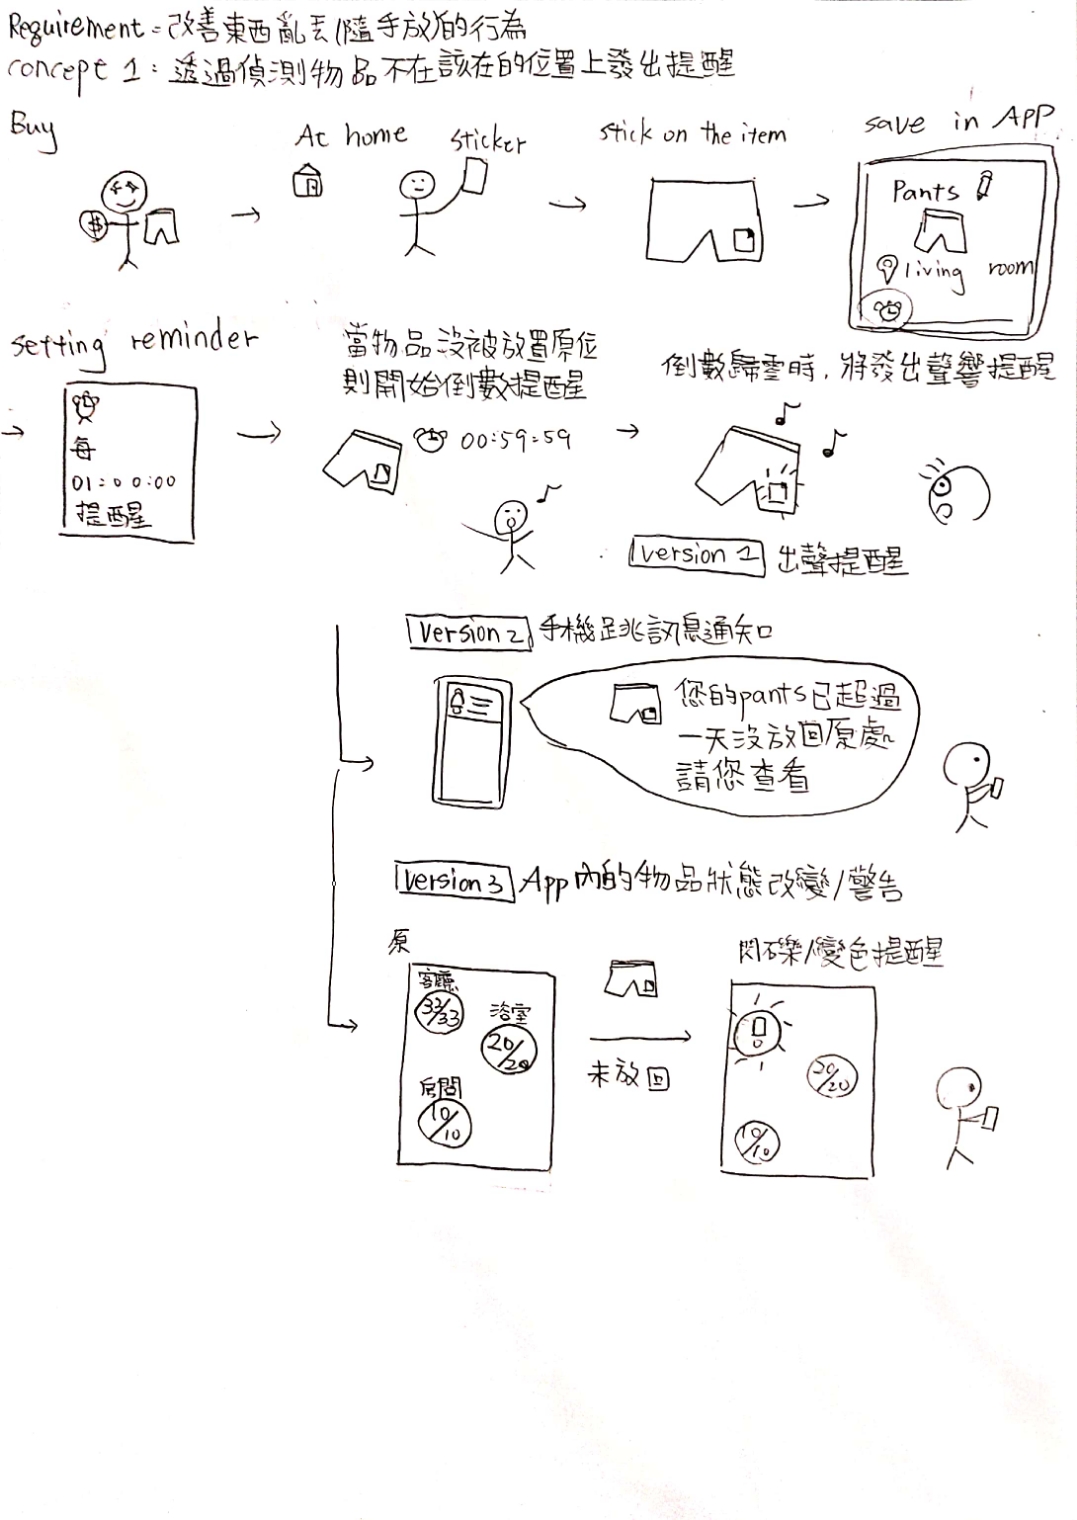 Requirement = 改善東西亂丟(隨手放)的行為
concept 1 : 透過偵測物品不在該在的位置上發出提醒
Buy
At home
sticker
stick on the item
save in APP
$
Pants
living room
setting reminder
每
01:00:00
提醒
當物品沒被放置原位
則開始倒數提醒
00:59:59
倒數歸零時,將發出聲響提醒
version 1 出聲提醒
version 2 手機跳訊息通知
您的pants已超過
一天沒放回原處
請您查看
version 3 App內的物品狀態改變/警告
原
客廳
33/33
浴室
20/20
房間
10/10
未放回
閃爍/變色提醒
20/20
10/10